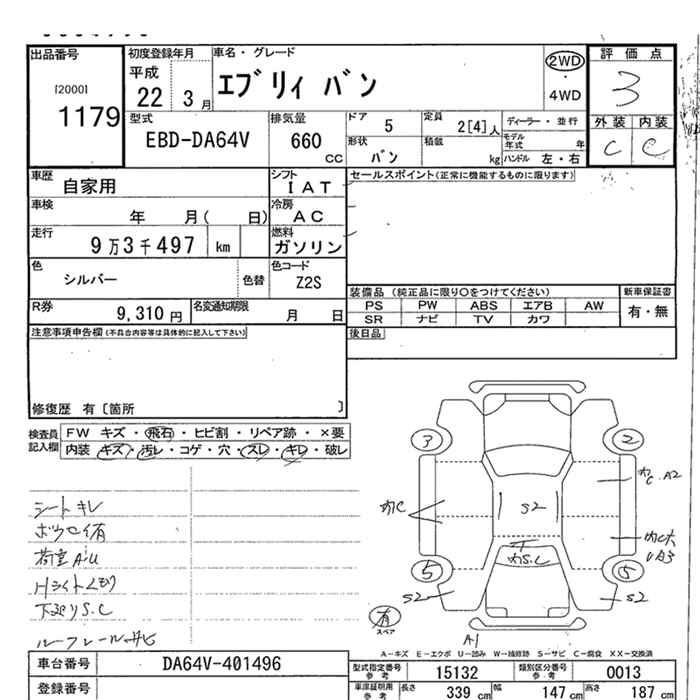 出品番号
[2000]
1179
初度登録年月
平成
22 3月
車名・グレード
エブリィ バン
2WD
・
4WD
評価点
3
外装 内装
C C
型式
EBD-DA64V
排気量
660
CC
ドア
5
定員
2[4]人
ディーラー・並行
形状
バン
積載
kg
モデル年式
年
ハンドル 左・右
車歴
自家用
シフト
IAT
セールスポイント(正常に機能するものに限ります)
車検
年 月( 日)
冷房
AC
走行
9万3千497 km
燃料
ガソリン
色
シルバー
色替
色コード
Z2S
装備品 (純正品に限り○をつけてください)
新車保証書
PS PW ABS エアB AW
有・無
SR ナビ TV カワ
R券
9,310円
名変通知期限
月 日
後日品
注意事項申告欄(不具合内容等は具体的に記入して下さい)
修復歴 有〔箇所 〕
検査員記入欄
FW キズ・飛石・ヒビ割・リペア跡・×要
内装 キズ・汚レ・コゲ・穴・スレ・キレ・破レ
シートキレ
荷室A・U
Hライトくもり
下廻りS.C
3
2
S2
C.A2
S.C
5
5
S2
S2
有
スペア
A1
A-キズ E-エクボ U-凹み W-補修跡 S-サビ C-腐食 XX-交換済
車台番号
DA64V-401496
登録番号
型式指定番号
参考
15132
類別区分番号
参考
0013
車庫証明用
参考
長さ
339 cm
幅
147 cm
高さ
187 cm